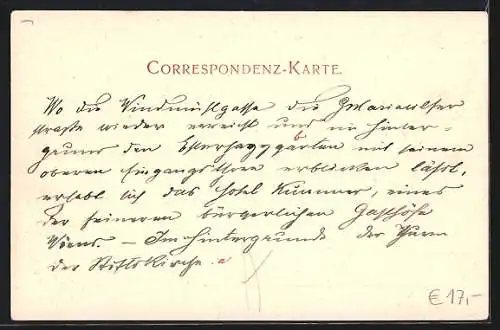 CORRESPONDENZ-KARTE.
Wo die Windmühlgasse die Mariahilfer
straße wieder erreicht und im Hinter-
grund den Esterhazygarten mit seinem
b
oberen Eingangsthore erblicken läßt,
erhebt sich das Hotel Kummer, eines
der feineren bürgerlichen Gasthöfe
Wiens. – Im Hintergrunde der Thurm
der Stiftskirche. a
€17,-